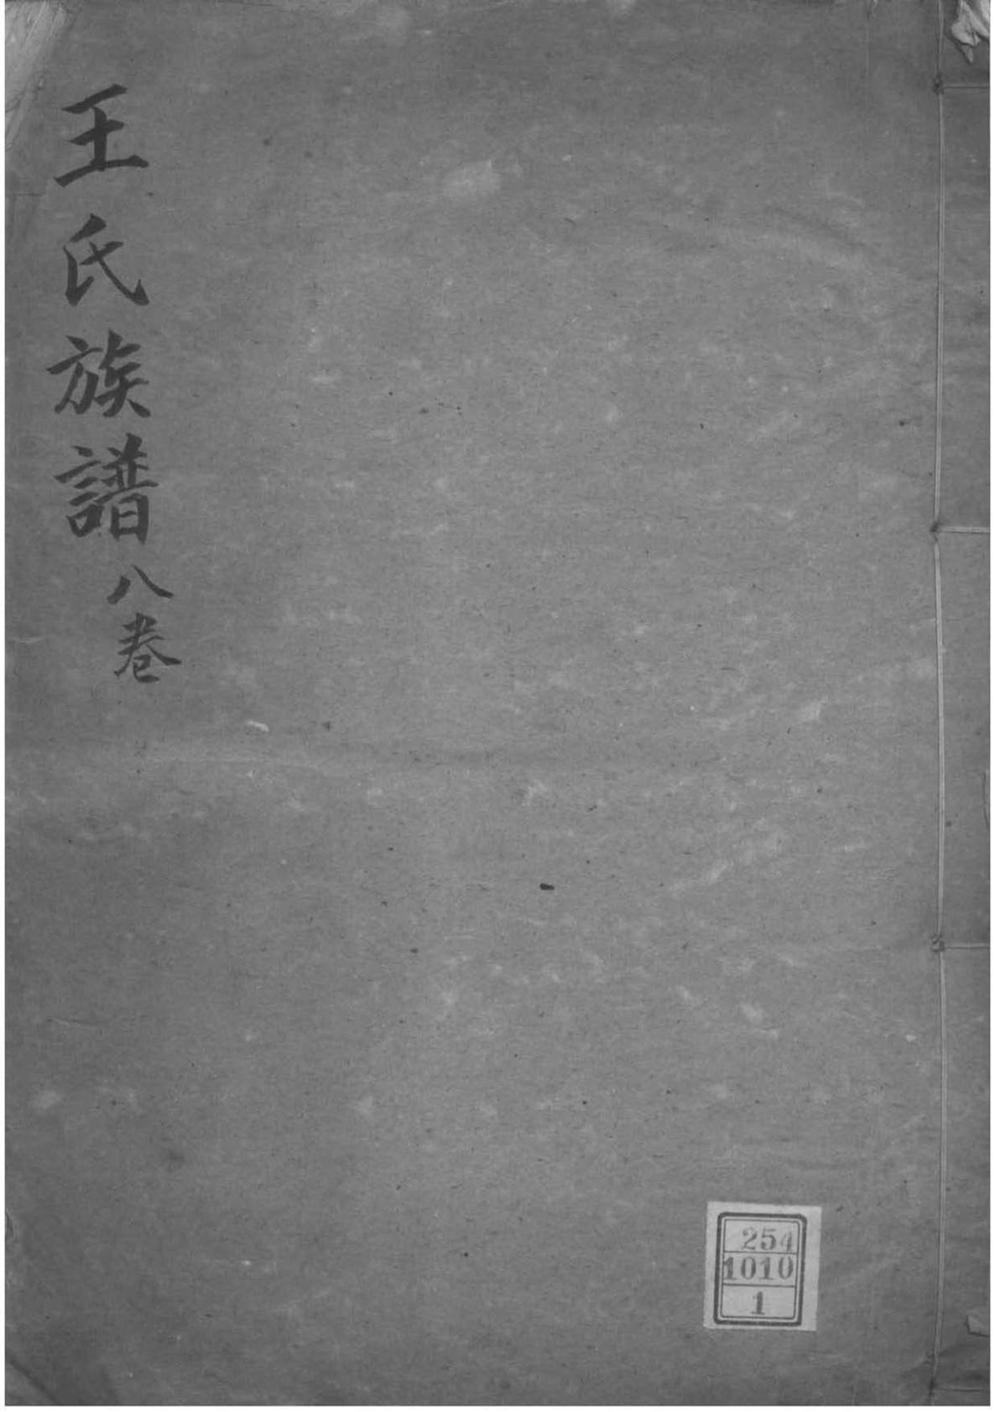 王氏族譜
八卷
254
1010
1